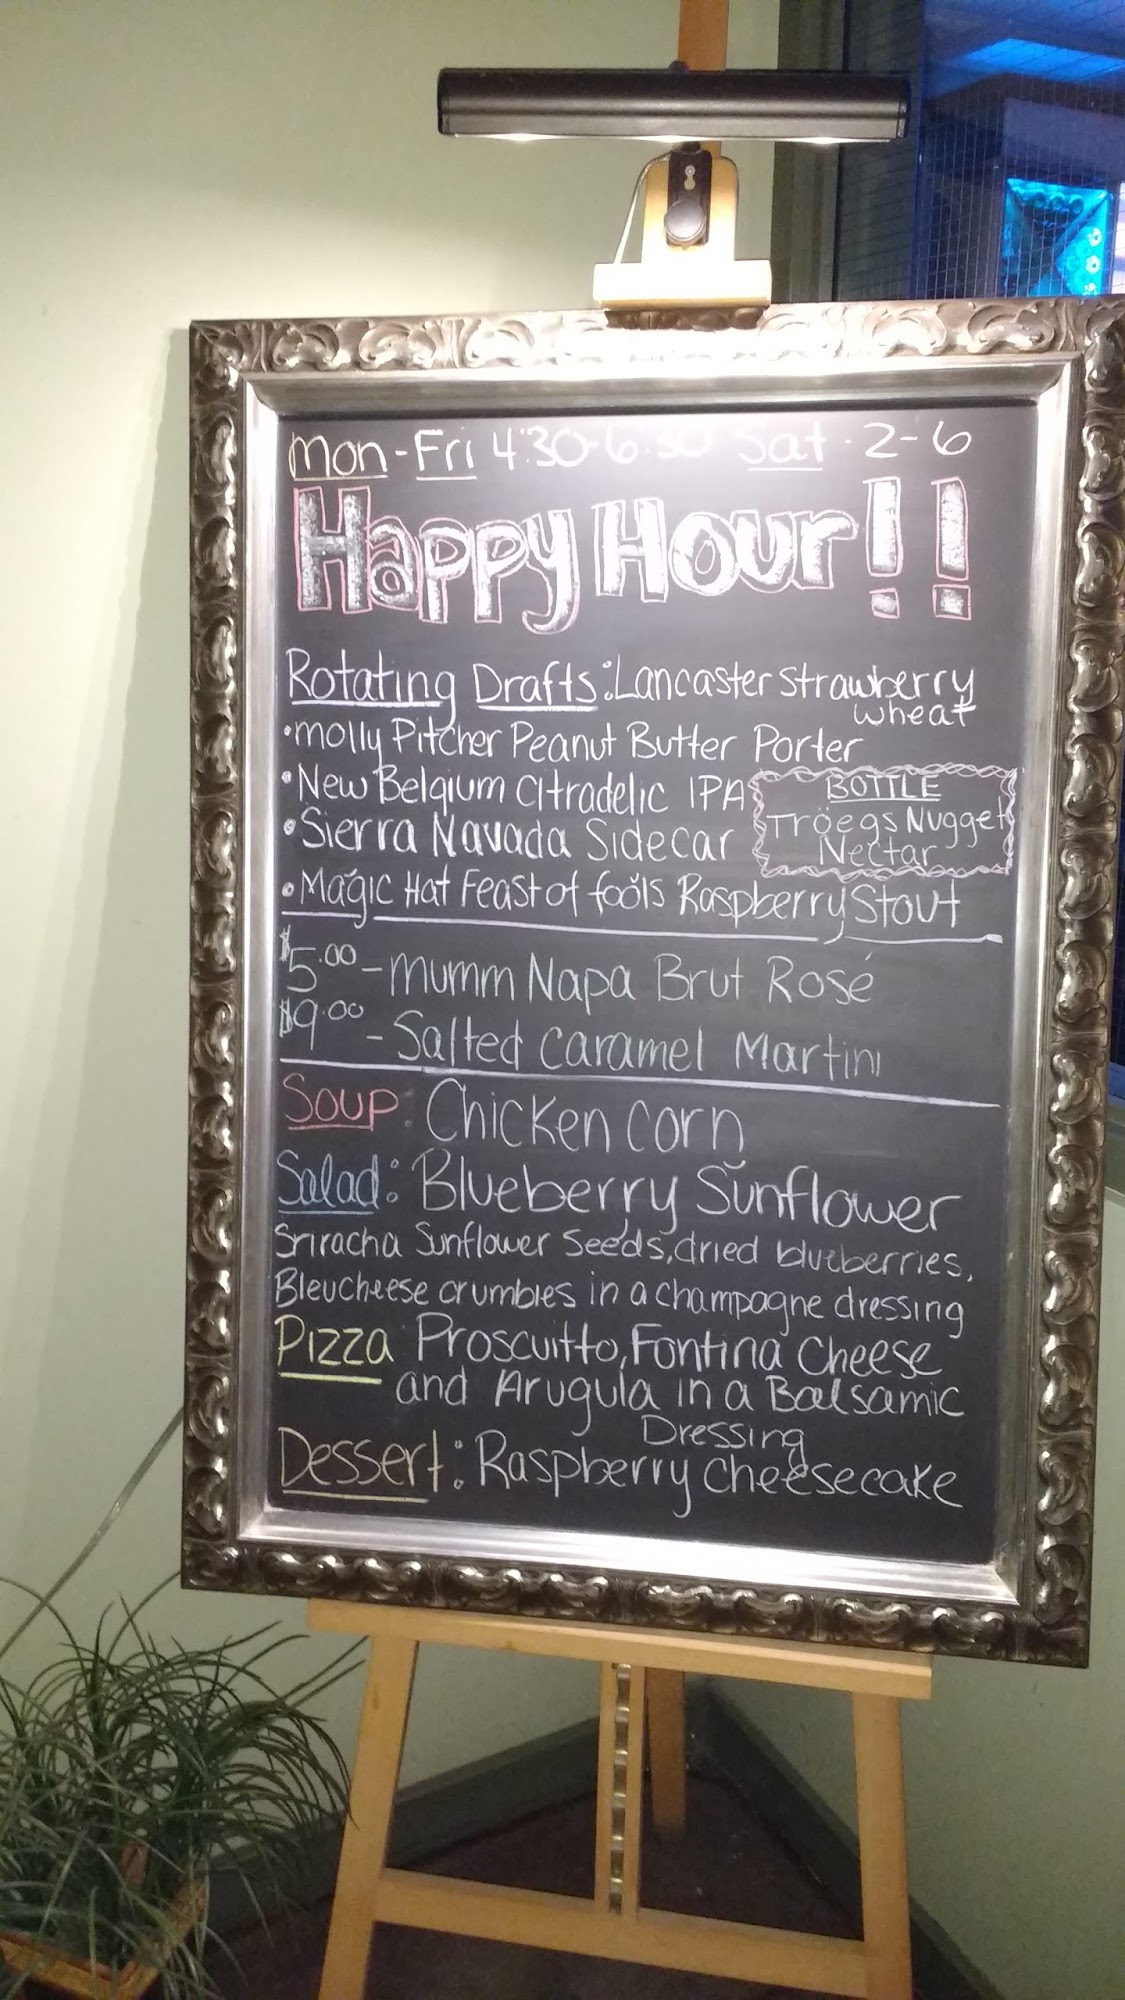 Mon - Fri 4:30-6:30 Sat - 2-6
Happy Hour!!
Rotating Drafts: Lancaster Strawberry
Wheat
•Molly Pitcher Peanut Butter Porter
•New Belgium Citradelic IPA
•Sierra Navada Sidecar
BOTTLE
Tröegs Nugget
Nectar
•Magic Hat Feast of fools Raspberry Stout
$5.00 - Mumm Napa Brut Rosé
$9.00 - Salted Caramel Martini
Soup: Chicken Corn
Salad: Blueberry Sunflower
Sriracha Sunflower Seeds, dried blueberries,
Bleucheese crumbles in a champagne dressing
Pizza Proscuitto, Fontina Cheese
and Arugula in a Balsamic
Dressing
Dessert: Raspberry Cheesecake